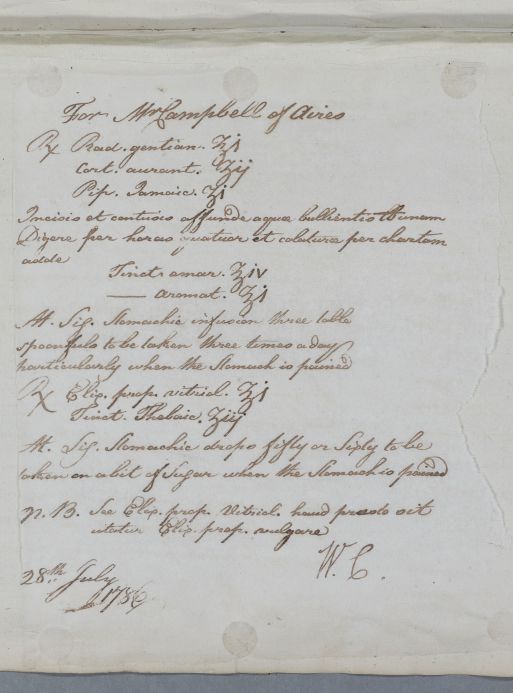 For Mr Campbell of Aires
℞ Rad. gentian. ʒj
Cort. aurant. ʒij
Pip. Jamaic. ʒj
Incisis et contusis affunde aquæ bullientis ℔unam
Digere per horas quatuor et colaturæ per chartam
adde
Tinct. amar. ʒiv
—— aromat. ʒj
M. Sig. Stomachic infusion three table
spoonfuls to be taken three times a day
particularly when the Stomach is pained
℞ Elix. prop. vitriol. ʒj
Tinct. Thebaic. ʒij
M. Sig. Stomachic drops fifty or Sixty to be
taken on a bit of Sugar when the Stomach is pained
N. B. See Elix. prop. Vitriol. haud presto sit
utatur Elix. prop. vulgare
W. C.
28th July
1786